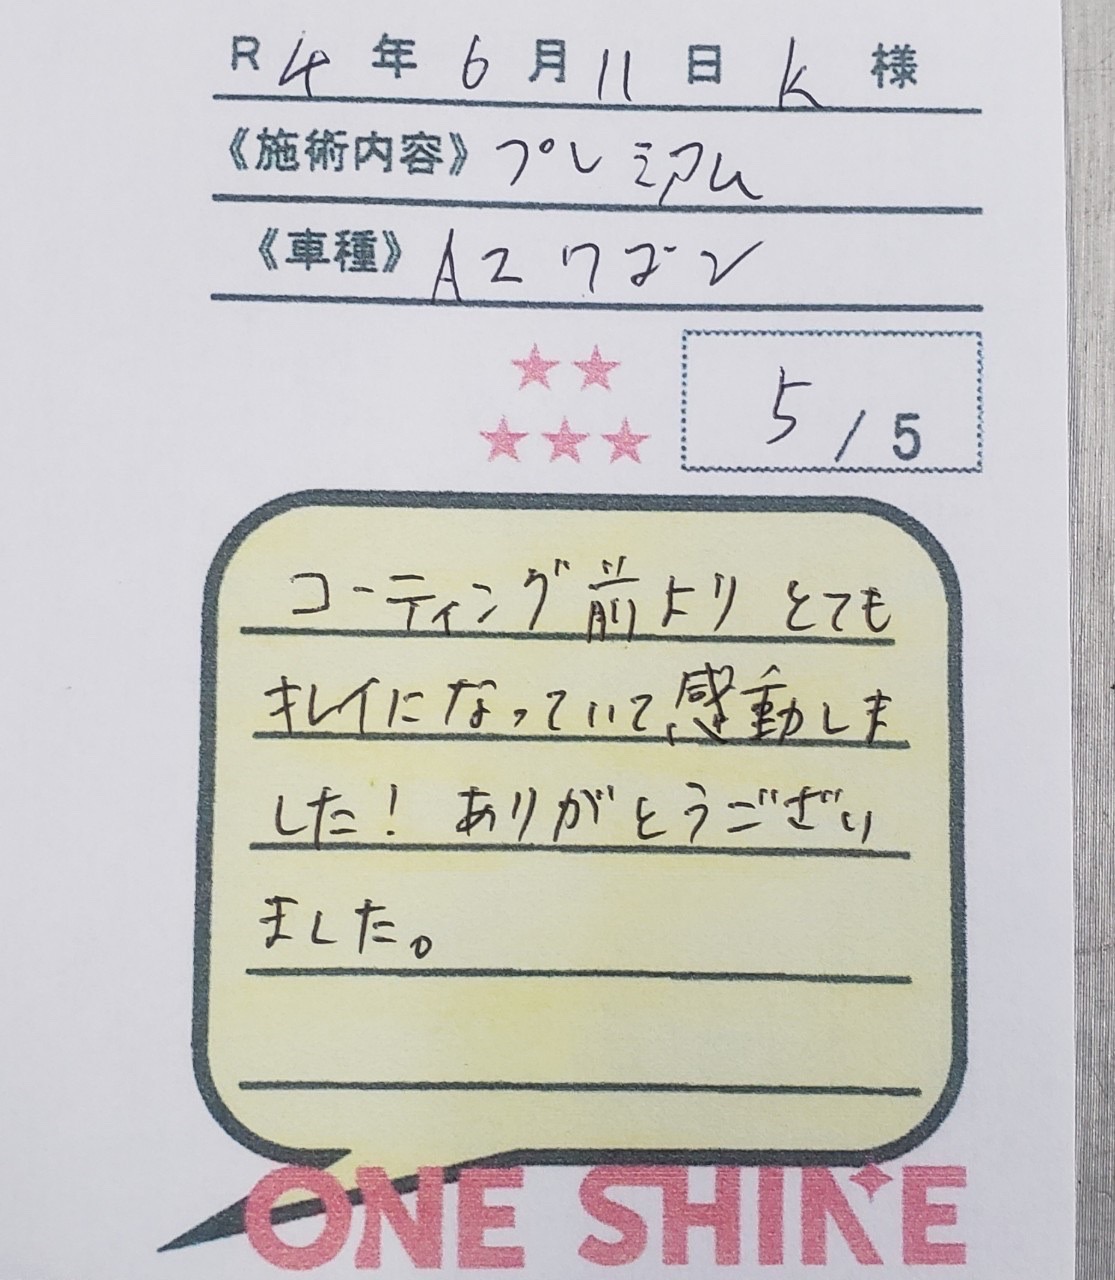 R4年6月11日 K 様
《施術内容》プレミアム
《車種》AZワゴン
5/5
コーティング前よりとても
キレイになっていて、感動しま
した! ありがとうござい
ました。
ONE SHINE